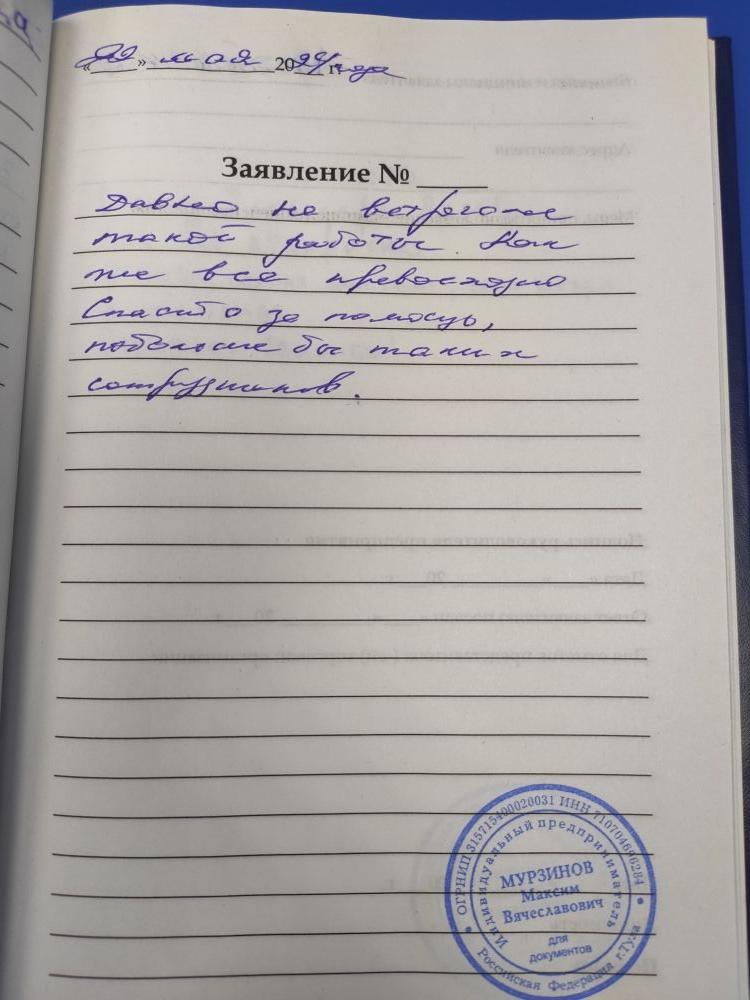 «22» мая 2024 года
Заявление № ____
Давно не встречали
такой работы. Как
же все превосходно
Спасибо за помощь,
побольше бы таких
сотрудников.
ОГРНИП 315715400020031 ИНН 710704696284
Индивидуальный предприниматель
МУРЗИНОВ
Максим
Вячеславович
для
документов
Российская Федерация г.Тула